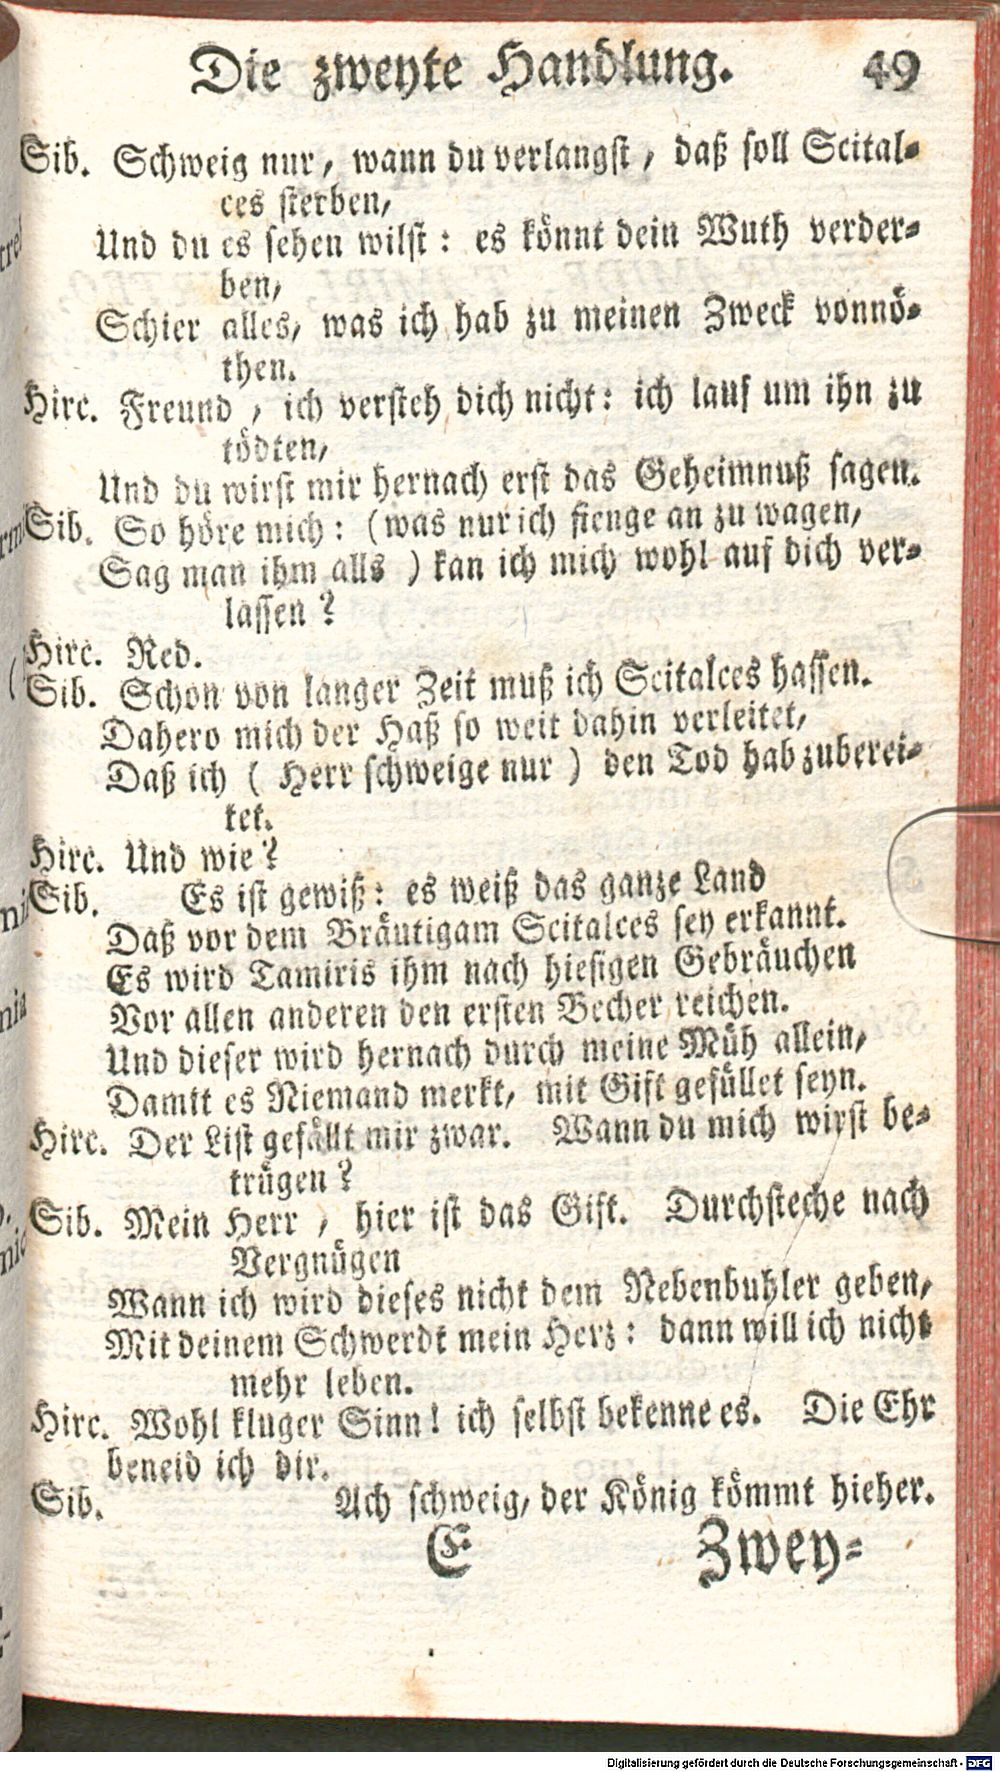 Die zweyte Handlung. 49
Sib. Schweig nur, wann du verlangst, daß soll Scital-
ces sterben,
Und du es sehen wilst: es könnt dein Wuth verder-
ben,
Schier alles, was ich hab zu meinen Zweck vonnö-
then.
Hirc. Freund, ich versteh dich nicht: ich lauf um ihn zu
tödten,
Und du wirst mir hernach erst das Geheimnuß sagen.
Sib. So höre mich: (was nur ich fienge an zu wagen,
Sag man ihm alls) kan ich mich wohl auf dich ver-
lassen?
Hirc. Red.
Sib. Schon von langer Zeit muß ich Scitalces hassen.
Dahero mich der Haß so weit dahin verleitet,
Daß ich (Herr schweige nur) den Tod hab zuberei-
tet.
Hirc. Und wie?
Sib. Es ist gewiß: es weiß das ganze Land
Daß vor dem Bräutigam Scitalces sey erkannt.
Es wird Tamiris ihm nach hiesigen Gebräuchen
Vor allen anderen den ersten Becher reichen.
Und dieser wird hernach durch meine Müh allein,
Damit es Niemand merkt, mit Gift gefüllet seyn.
Hirc. Der List gefällt mir zwar. Wann du mich wirst be-
trügen?
Sib. Mein Herr, hier ist das Gift. Durchsteche nach
Vergnügen
Wann ich wird dieses nicht dem Nebenbuhler geben,
Mit deinem Schwerdt mein Herz: dann will ich nicht
mehr leben.
Hirc. Wohl kluger Sinn! ich selbst bekenne es. Die Ehr
beneid ich dir.
Sib. Ach schweig, der König kömmt hieher.
E Zwey-
Digitalisierung gefördert durch die Deutsche Forschungsgemeinschaft - DFG